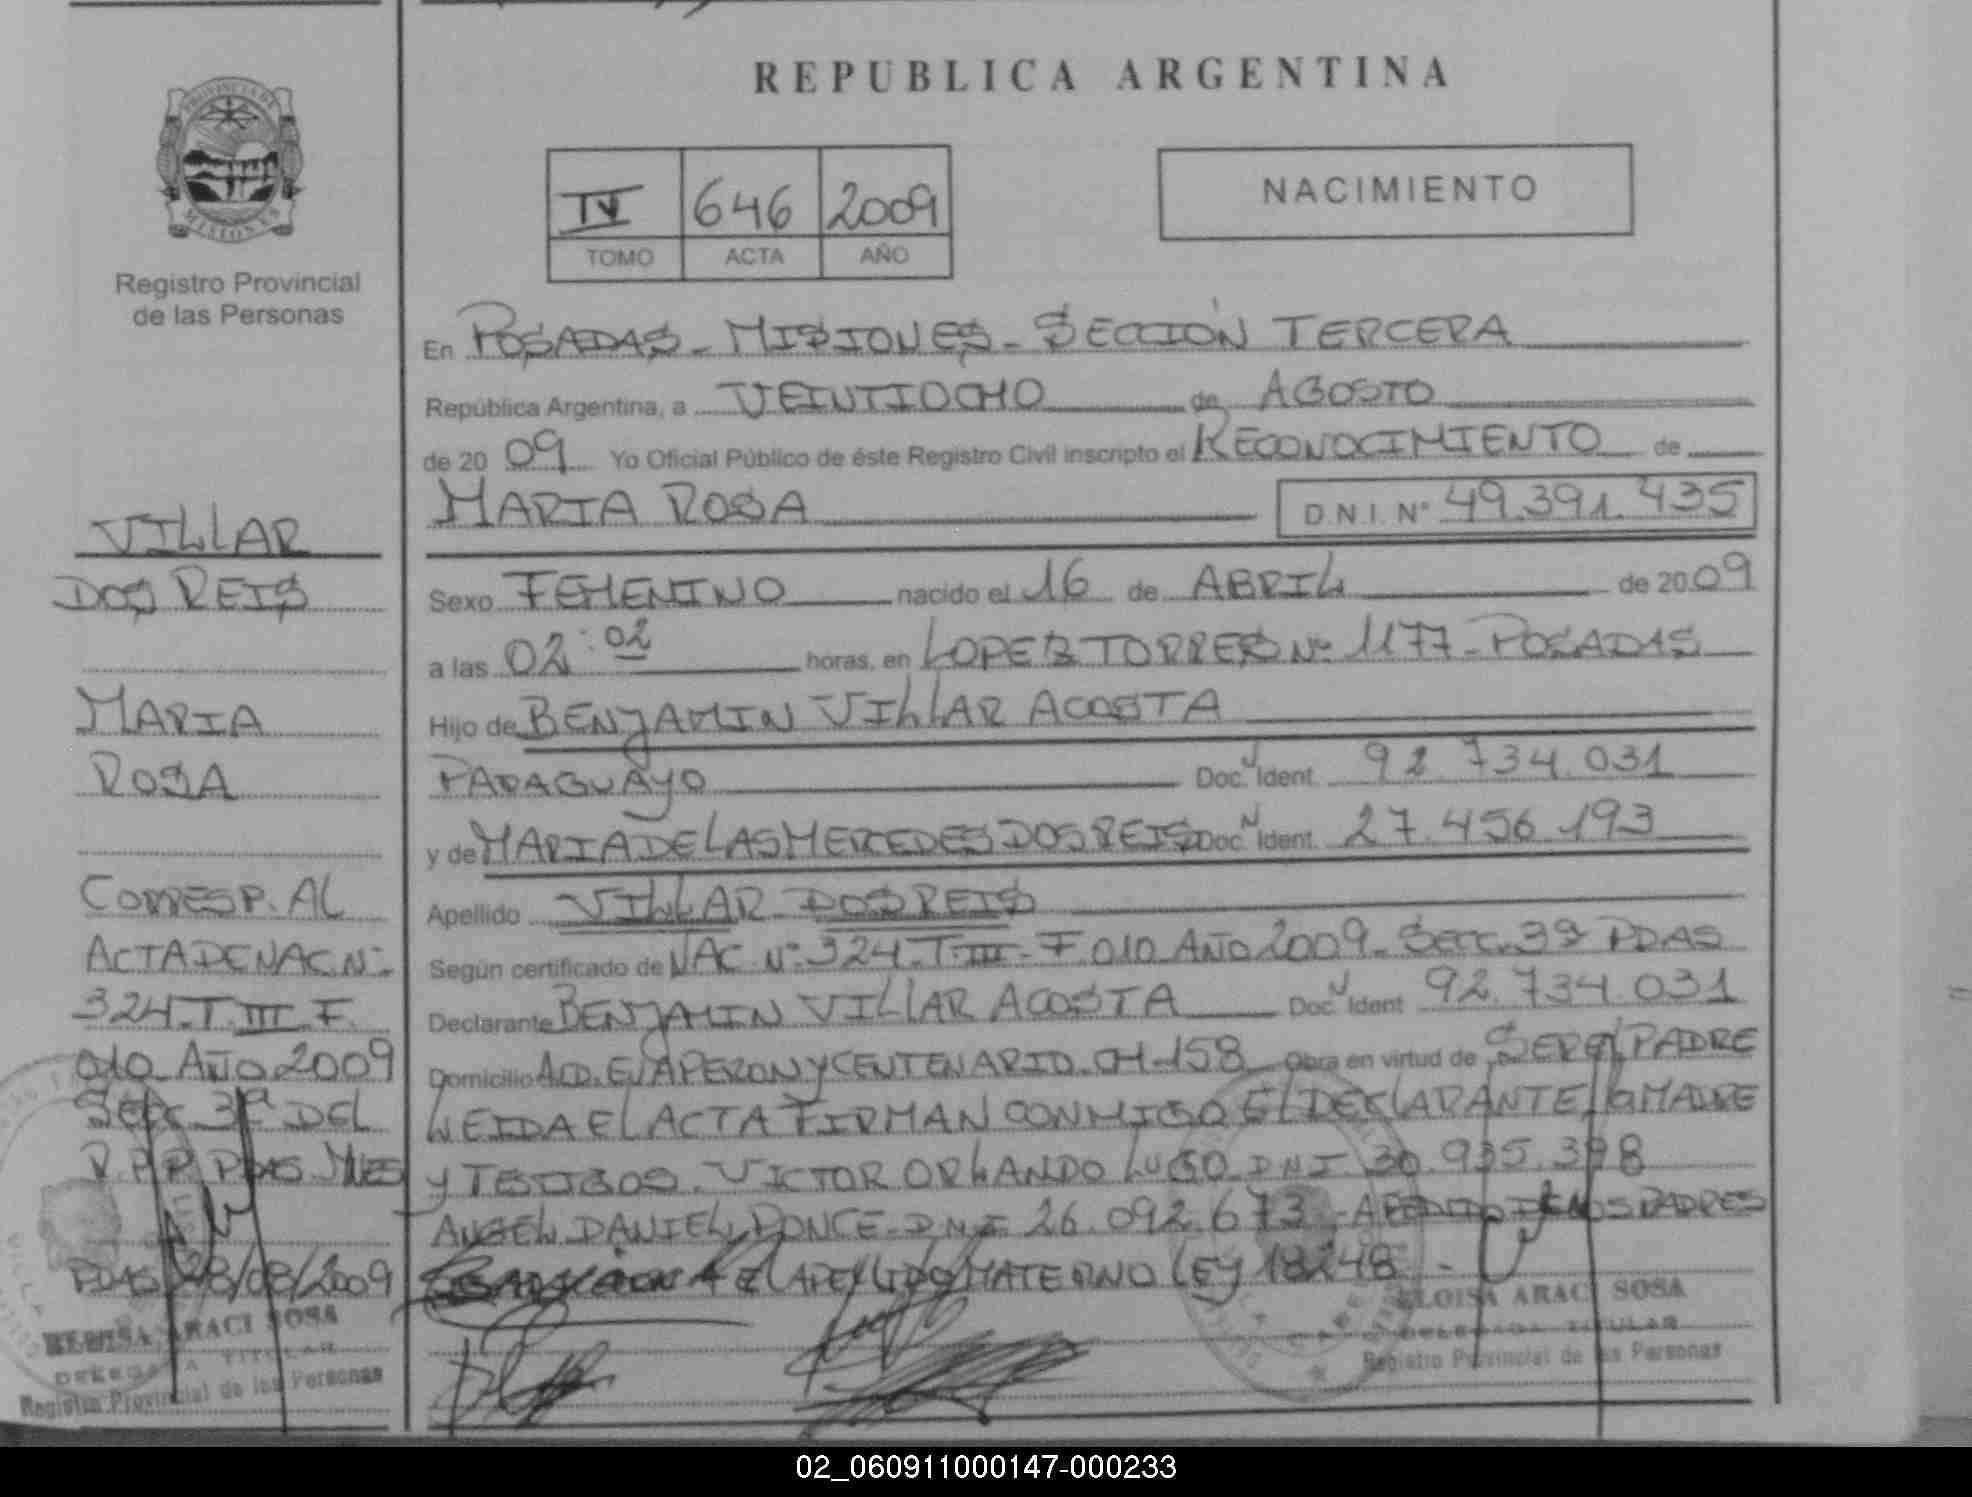 REPUBLICA ARGENTINA
PROVINCIA DE
MISIONES
Registro Provincial
de las Personas
IV 646 2009
TOMO ACTA AÑO
NACIMIENTO
En POSADAS - MISIONES - SECCIÓN TERCERA
República Argentina, a VEINTIOCHO de AGOSTO
de 20 09 Yo Oficial Público de éste Registro Civil inscripto el RECONOCIMIENTO de
MARIA ROSA D.N.I. N° 49.391.435
Sexo FEMENINO nacido el 16 de ABRIL de 20 09
a las 02:02 horas, en LOPEZ TORRES N° 1177 - POSADAS
Hijo de BENJAMIN VILLAR ACOSTA
PARAGUAYO Doc. Ident. 92.734.031
y de MARIA DE LAS MERCEDES DOS REIS Doc. Ident. 27.456.193
Apellido VILLAR DOS REIS
Según certificado de NAC. N° 324 - T. III - F 010 - AÑO 2009 - SECC. 3ª PDAS
Declarante BENJAMIN VILLAR ACOSTA Doc. Ident 92.734.031
Domicilio AVD. EVA PERON Y CENTENARIO - CH - 158 Obra en virtud de SER EL PADRE
LEIDA EL ACTA FIRMAN CONMIGO EL DECLARANTE, LA MADRE
Y TESTIGOS. VICTOR ORLANDO LUGO DNI 30.935.398
ANGEL DANIEL PONCE - DNI 26.092.673 - A PEDIDO DE LOS PADRES
EL APELLIDO MATERNO LEY 18248 -
ELOISA ARACI SOSA
DELEGADA TITULAR
Registro Provincial de las Personas
VILLAR
DOS REIS
MARIA
ROSA
CORRESP. AL
ACTA DE NAC. N°
324 - T. III - F.
010 - AÑO 2009
SECC. 3ª DEL
R.P.P. PDAS MNES
PDAS 28/08/2009
ELOISA ARACI SOSA
DELEGADA TITULAR
Registro Provincial de las Personas
02_060911000147-000233